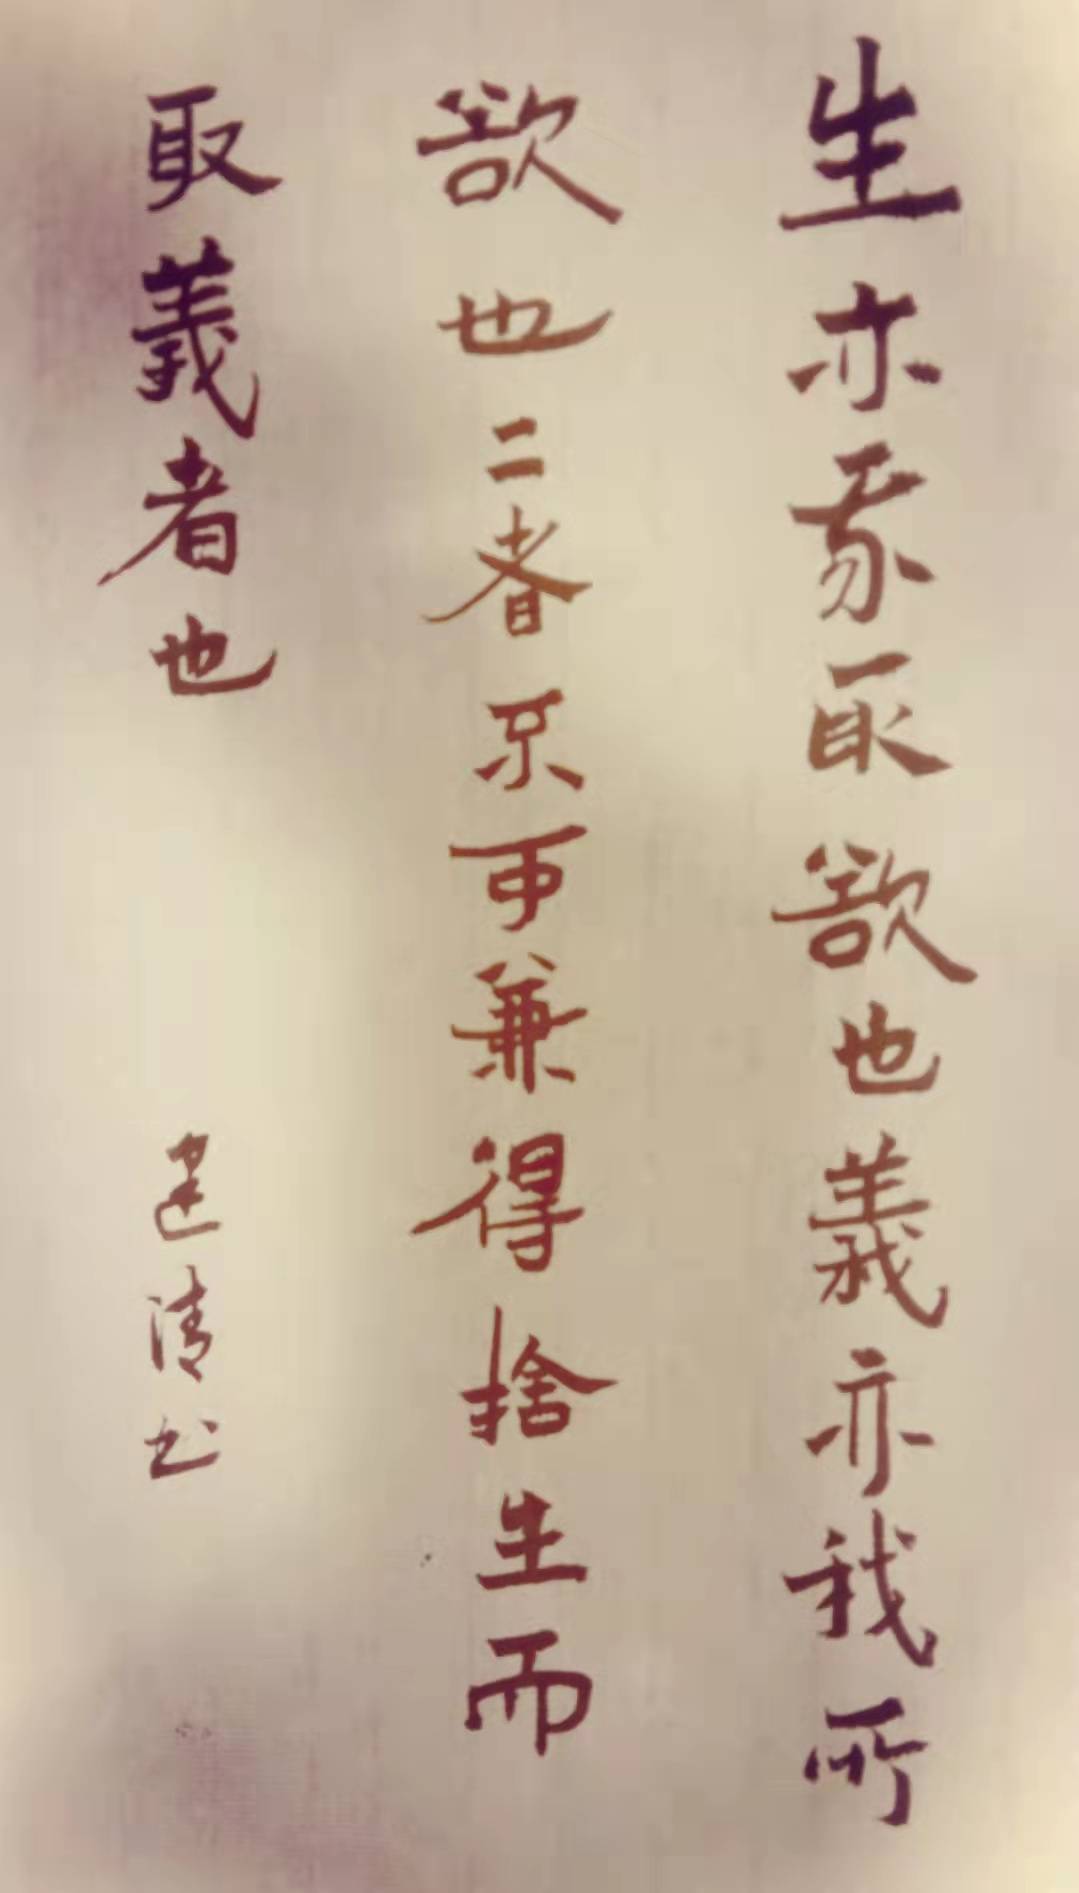 生亦我所欲也義亦我所
欲也二者不可兼得捨生而
取義者也
建清书